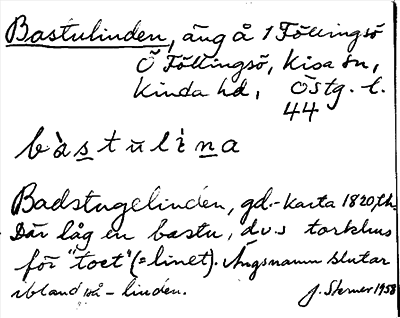 Bastulinden, äng å 1 Föllingsö
Ö Föllingsö, Kisa sn,
Kinda hd, Östg. l.
44
bàstulìna
Badstugelinden, gd.-karta 1820,th.
Där låg en bastu, dvs torkhus
för "toet" (=linet). Ängsnamn slutar
ibland på - linden. J. Sterner 1958